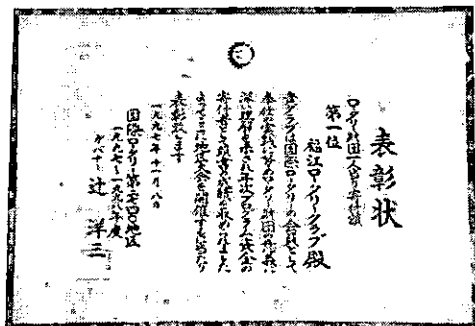 表彰状
ロータリー財団一人当り寄付額
第一位
福江ロータリークラブ殿
貴クラブは国際ロータリーの会員として
奉仕の実践に努めロータリー財団の意義に
深い理解を示され年次プログラム資金の
寄付者として優秀な成績を収められました
よってここに地区大会を開催するに当たり
表彰致します
一九九七年十一月八日
国際ロータリー第二七四〇地区
一九九七〜一九九八年度
ガバナー 辻 洋三